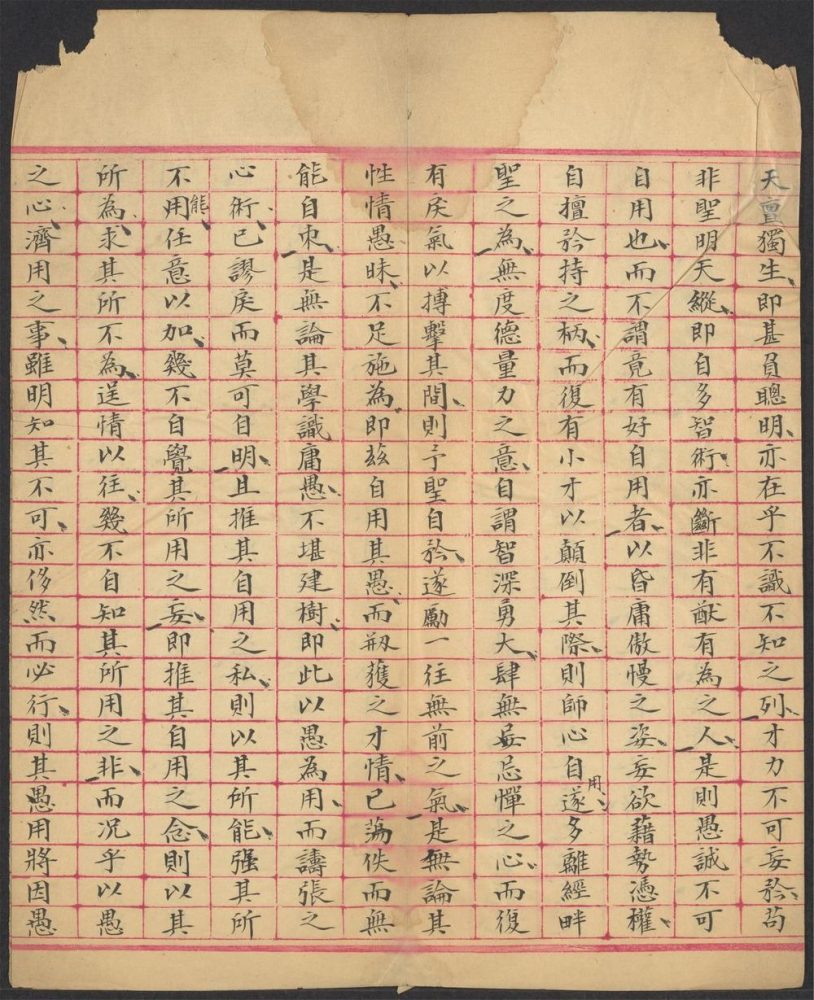 天亶獨生、即甚員聰明、亦在乎不識不知之列、才力不可妄矜、苟
非聖明天縱、即自多智術、亦斷非有猷有為之人、是則愚誠不可
自用也、而不謂竟有好自用者、以昏庸傲慢之姿、妄欲藉勢憑權、
自擅矜持之柄、而復有小才以顛倒其際、則師心自遂用、多離經畔
聖之為、無度德量力之意、自謂智深勇大、肆無妄忌憚之心、而復
有戾氣以搏擊其間、則予聖自矜、遂勵一往無前之氣、是無論其
性情愚昧、不足施為、即茲自用其愚、而刱獲之才情、已蕩佚而無
能自束、是無論其學識庸愚、不堪建樹、即此以愚為用、而譸張之
心術、已謬戾而莫可自明、且推其自用之私、則以其所能、强其所
不用能任意以加、幾不自覺其所用之妄、即推其自用之念、則以其
所為、求其所不為、逞情以往、幾不自知其所用之非、而况乎以愚
之心、濟用之事、雖明知其不可、亦侈然而必行、則其愚用將因愚